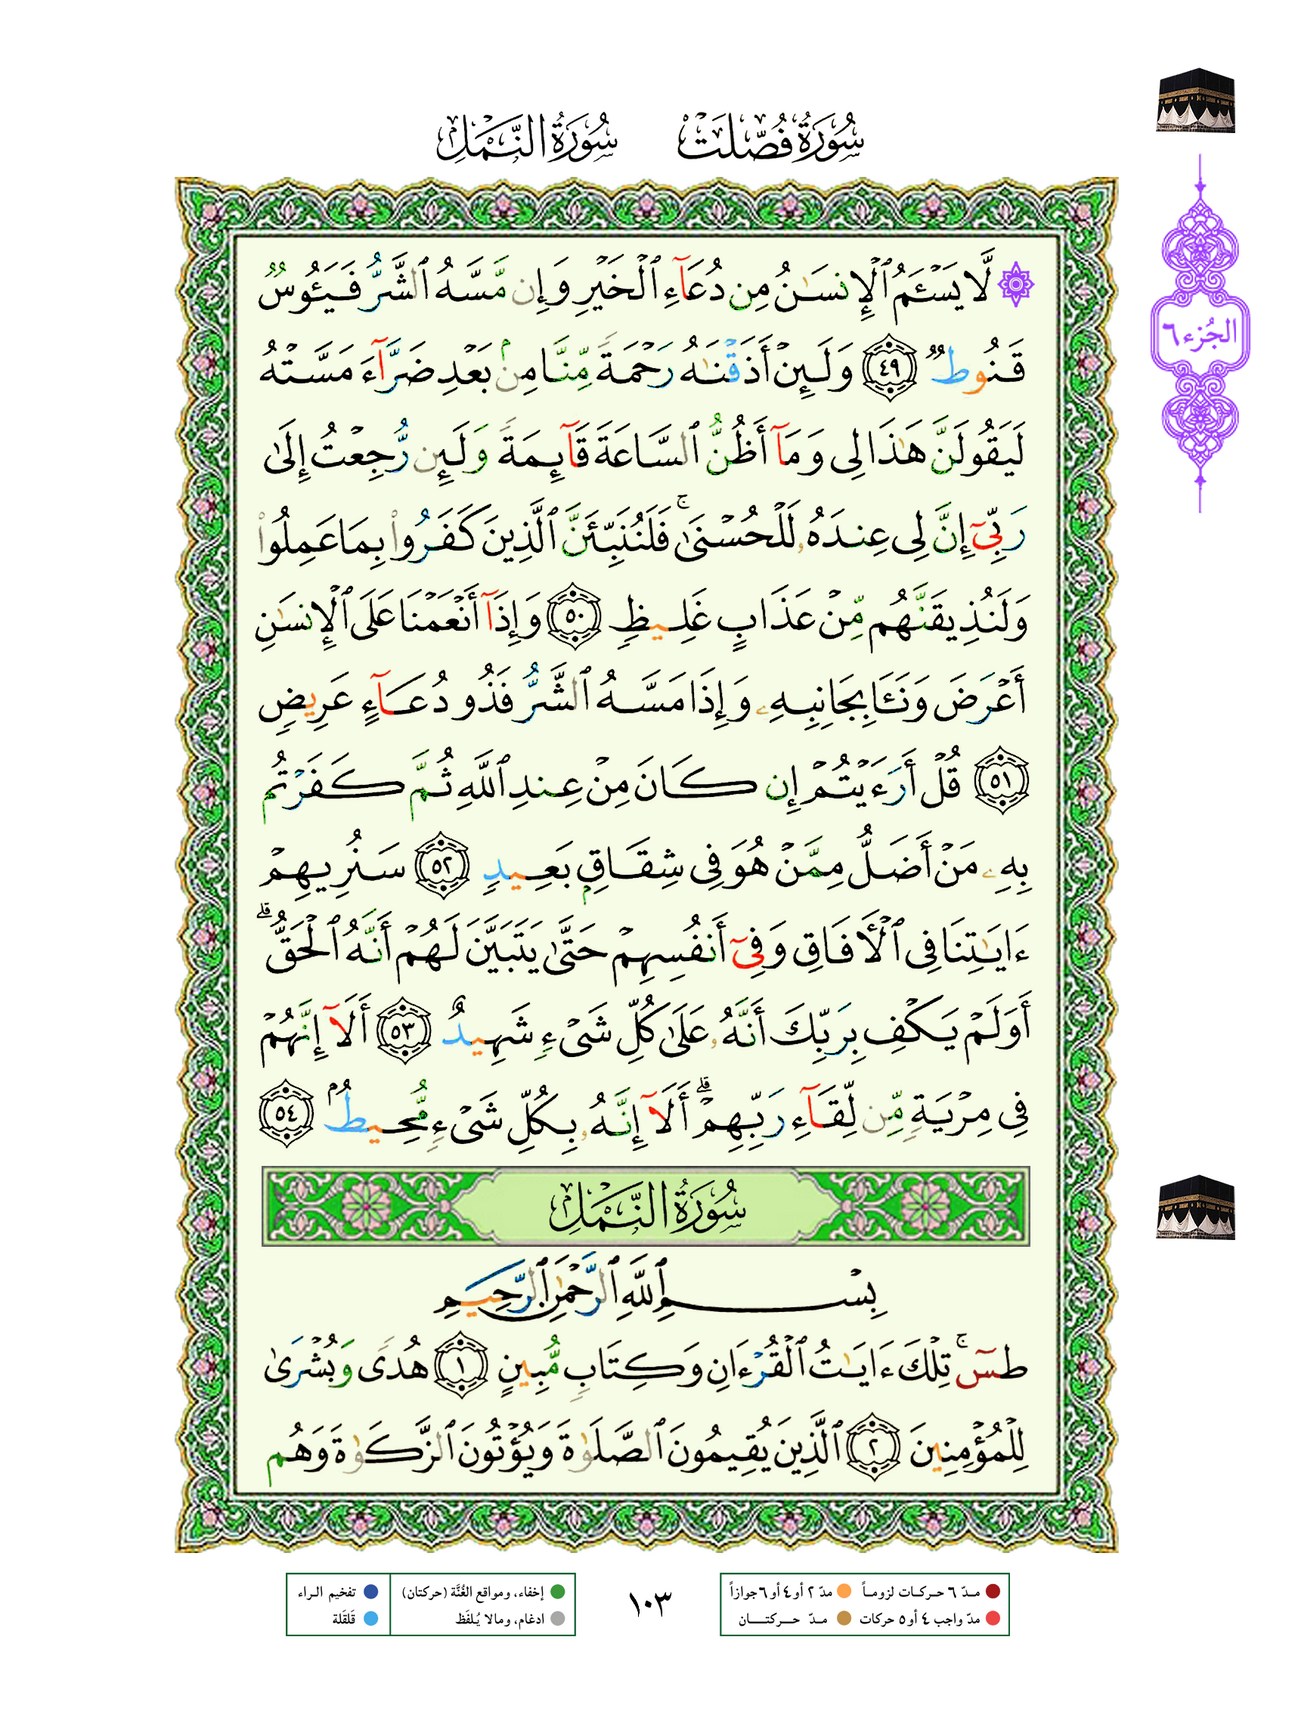 سُورَةُ فُصِّلَتْ سُورَةُ النَّمْلِ
الجُزء ٦
لَّا يَسْـَٔمُ ٱلْإِنسَـٰنُ مِن دُعَآءِ ٱلْخَيْرِ وَإِن مَّسَّهُ ٱلشَّرُّ فَيَـُٔوسٌ
قَنُوطٌ ٤٩ وَلَئِنْ أَذَقْنَـٰهُ رَحْمَةً مِّنَّا مِنۢ بَعْدِ ضَرَّآءَ مَسَّتْهُ
لَيَقُولَنَّ هَـٰذَا لِى وَمَآ أَظُنُّ ٱلسَّاعَةَ قَآئِمَةً وَلَئِن رُّجِعْتُ إِلَىٰ
رَبِّىٓ إِنَّ لِى عِندَهُۥ لَلْحُسْنَىٰ ۚ فَلَنُنَبِّئَنَّ ٱلَّذِينَ كَفَرُوا۟ بِمَا عَمِلُوا۟
وَلَنُذِيقَنَّهُم مِّنْ عَذَابٍ غَلِيظٍ ٥٠ وَإِذَآ أَنْعَمْنَا عَلَى ٱلْإِنسَـٰنِ
أَعْرَضَ وَنَـَٔا بِجَانِبِهِۦ وَإِذَا مَسَّهُ ٱلشَّرُّ فَذُو دُعَآءٍ عَرِيضٍ
٥١ قُلْ أَرَءَيْتُمْ إِن كَانَ مِنْ عِندِ ٱللَّهِ ثُمَّ كَفَرْتُم
بِهِۦ مَنْ أَضَلُّ مِمَّنْ هُوَ فِى شِقَاقٍۭ بَعِيدٍ ٥٢ سَنُرِيهِمْ
ءَايَـٰتِنَا فِى ٱلْـَٔافَاقِ وَفِىٓ أَنفُسِهِمْ حَتَّىٰ يَتَبَيَّنَ لَهُمْ أَنَّهُ ٱلْحَقُّ ۗ
أَوَلَمْ يَكْفِ بِرَبِّكَ أَنَّهُۥ عَلَىٰ كُلِّ شَىْءٍ شَهِيدٌ ٥٣ أَلَآ إِنَّهُمْ
فِى مِرْيَةٍ مِّن لِّقَآءِ رَبِّهِمْ ۗ أَلَآ إِنَّهُۥ بِكُلِّ شَىْءٍ مُّحِيطٌۢ ٥٤
سُورَةُ النَّمْلِ
بِسْمِ ٱللَّهِ ٱلرَّحْمَـٰنِ ٱلرَّحِيمِ
طسٓ ۚ تِلْكَ ءَايَـٰتُ ٱلْقُرْءَانِ وَكِتَابٍ مُّبِينٍ ١ هُدًى وَبُشْرَىٰ
لِلْمُؤْمِنِينَ ٢ ٱلَّذِينَ يُقِيمُونَ ٱلصَّلَوٰةَ وَيُؤْتُونَ ٱلزَّكَوٰةَ وَهُم
مـدّ ٦ حـركـات لزومـاً مدّ ٢ أو ٤ أو ٦ جوازاً
مدّ واجب ٤ أو ٥ حركات مـدّ حـــركتـــــان
١٠٣
إخفاء، ومواقع الغُنَّة (حركتان) تفخيم الـراء
ادغام، ومالا يُـلفَظ قَلقَلة